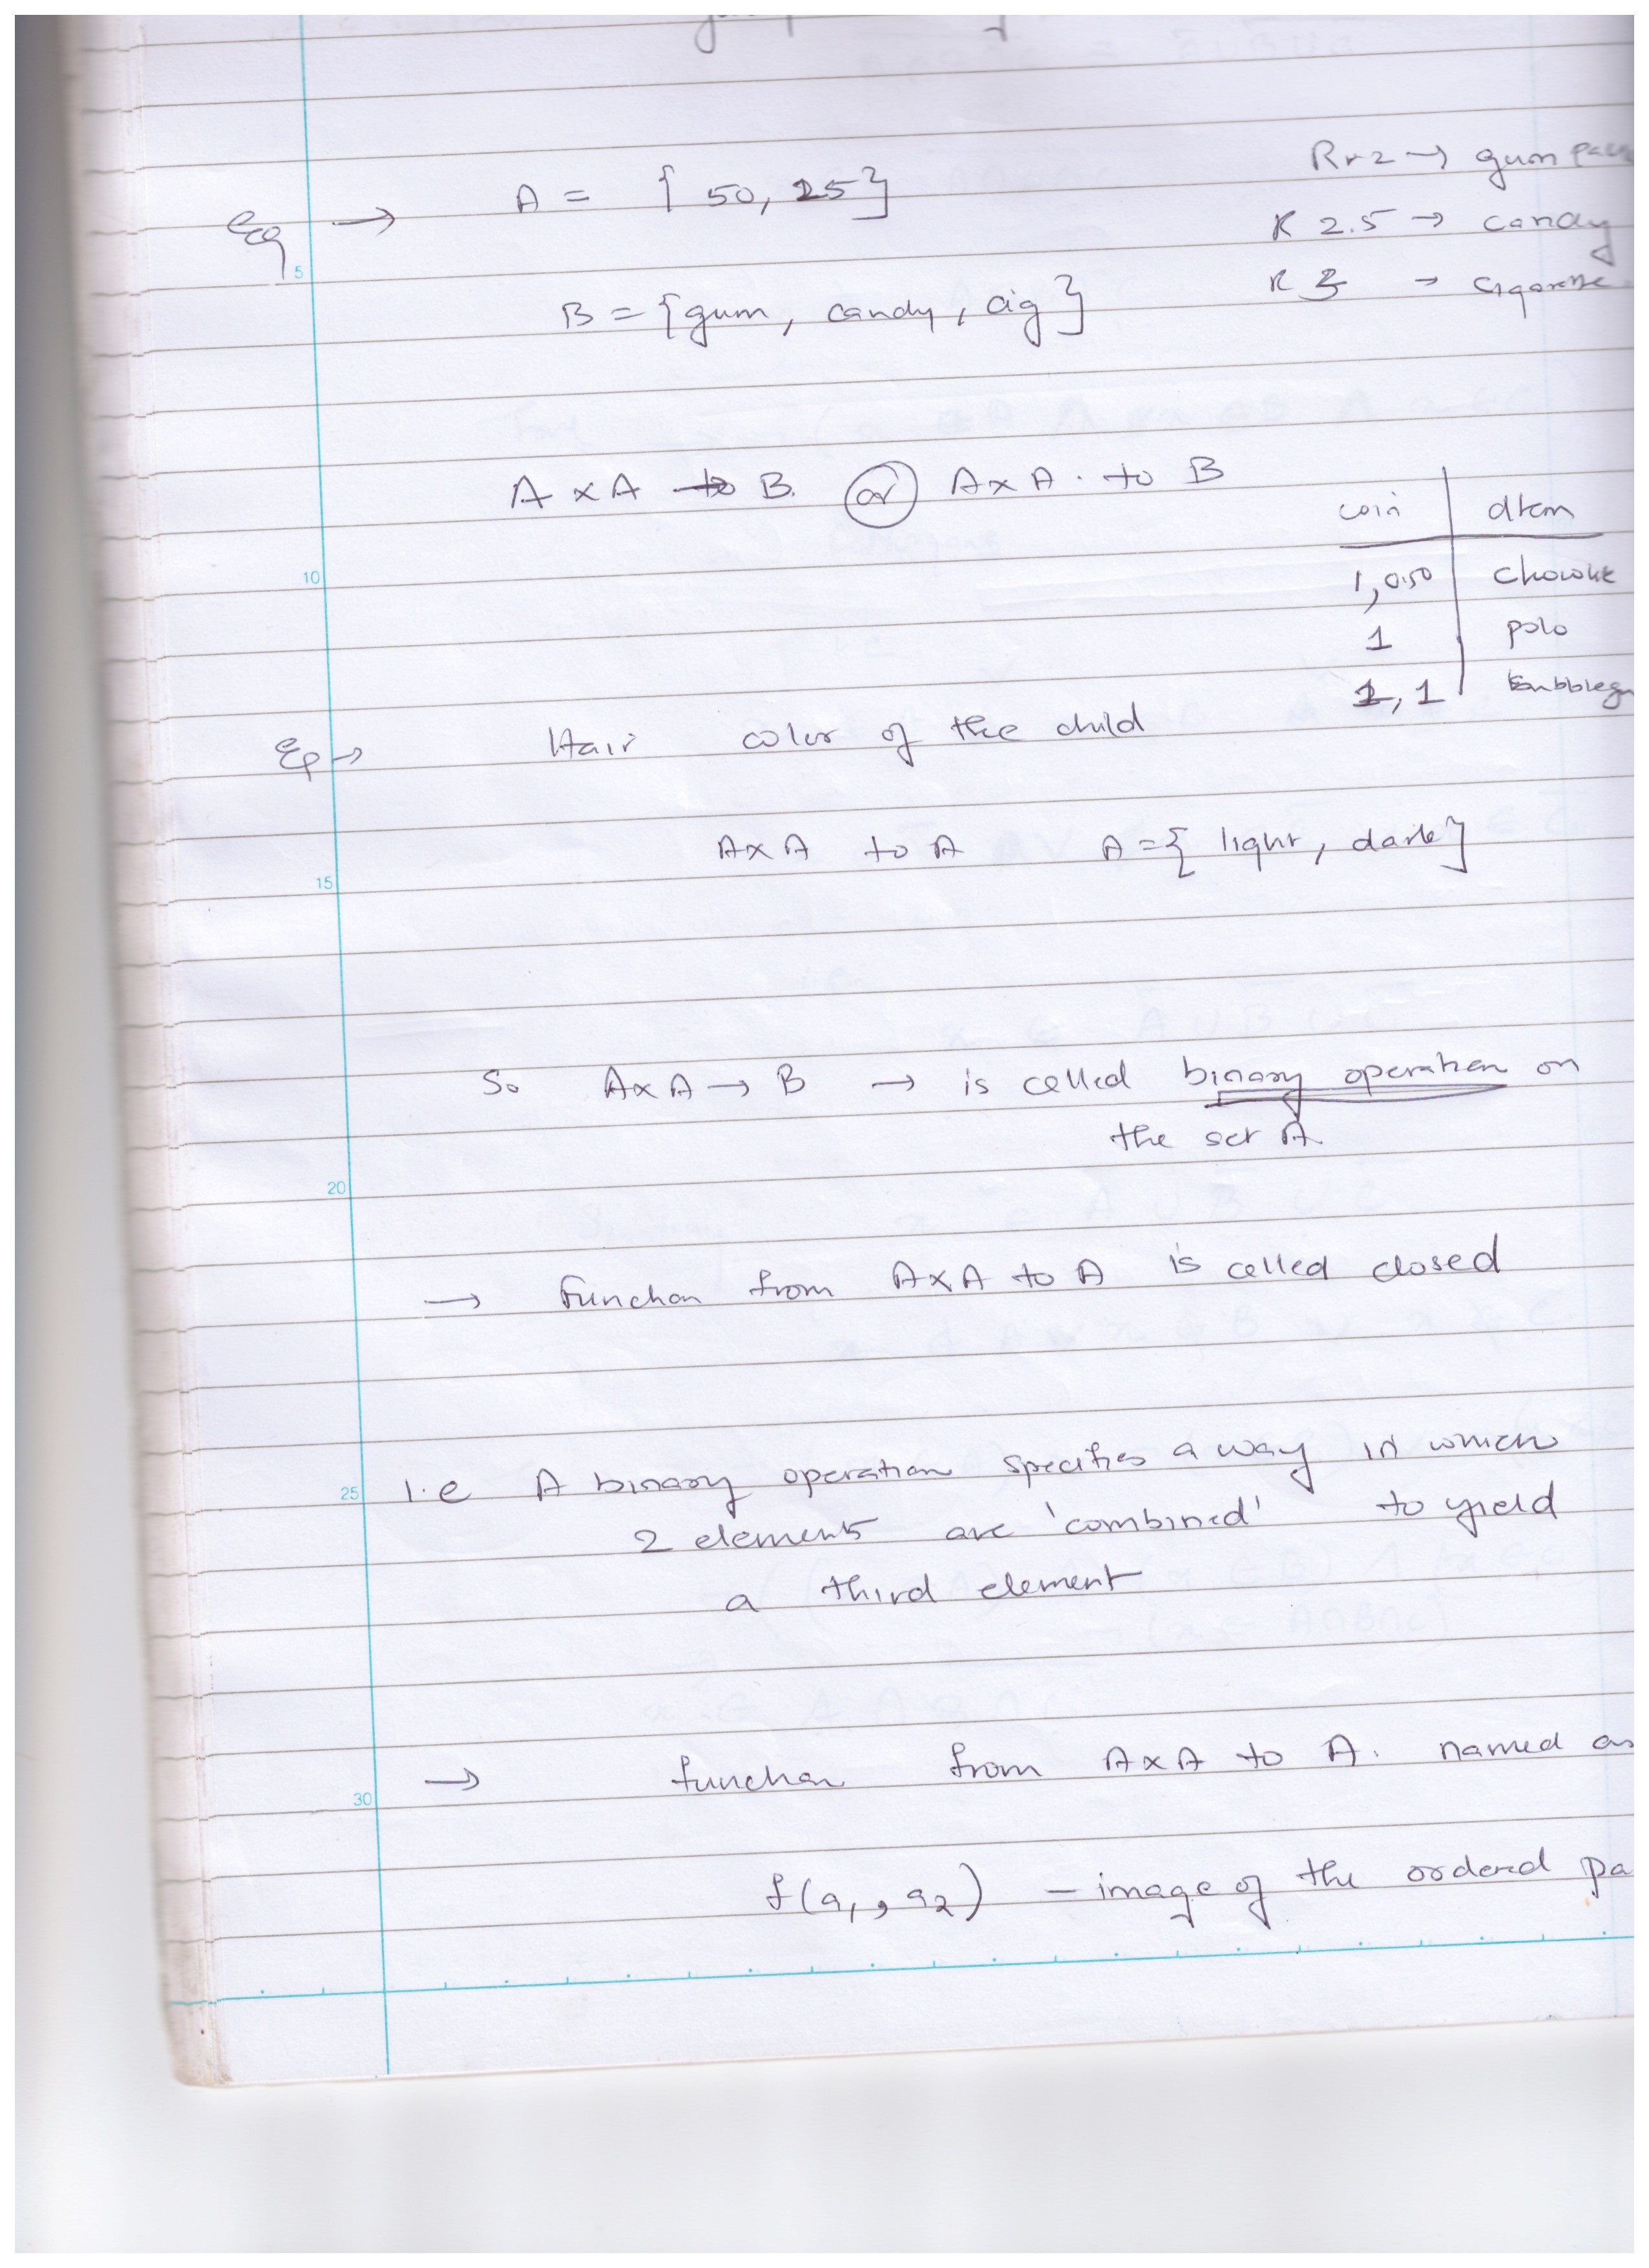 Eg → A = { 50, 25 }
Rs 2 → gum
R 2.5 → candy
R 3 → cigarette
B = { gum, candy, cig }
A x A to B. or A x A . to B
coin item
1, 0.50
1 polo
1, 1
Eg → Hair color of the child
A x A to A A = { light, dark }
So A x A → B → is called binary operation on
the set A.
→ Function from A x A to A is called closed
i.e A binary operation specifies a way in which
2 elements are 'combined' to yield
a third element
→ function from A x A to A. named as
f(a1, a2) – image of the ordered pa
5
10
15
20
25
30